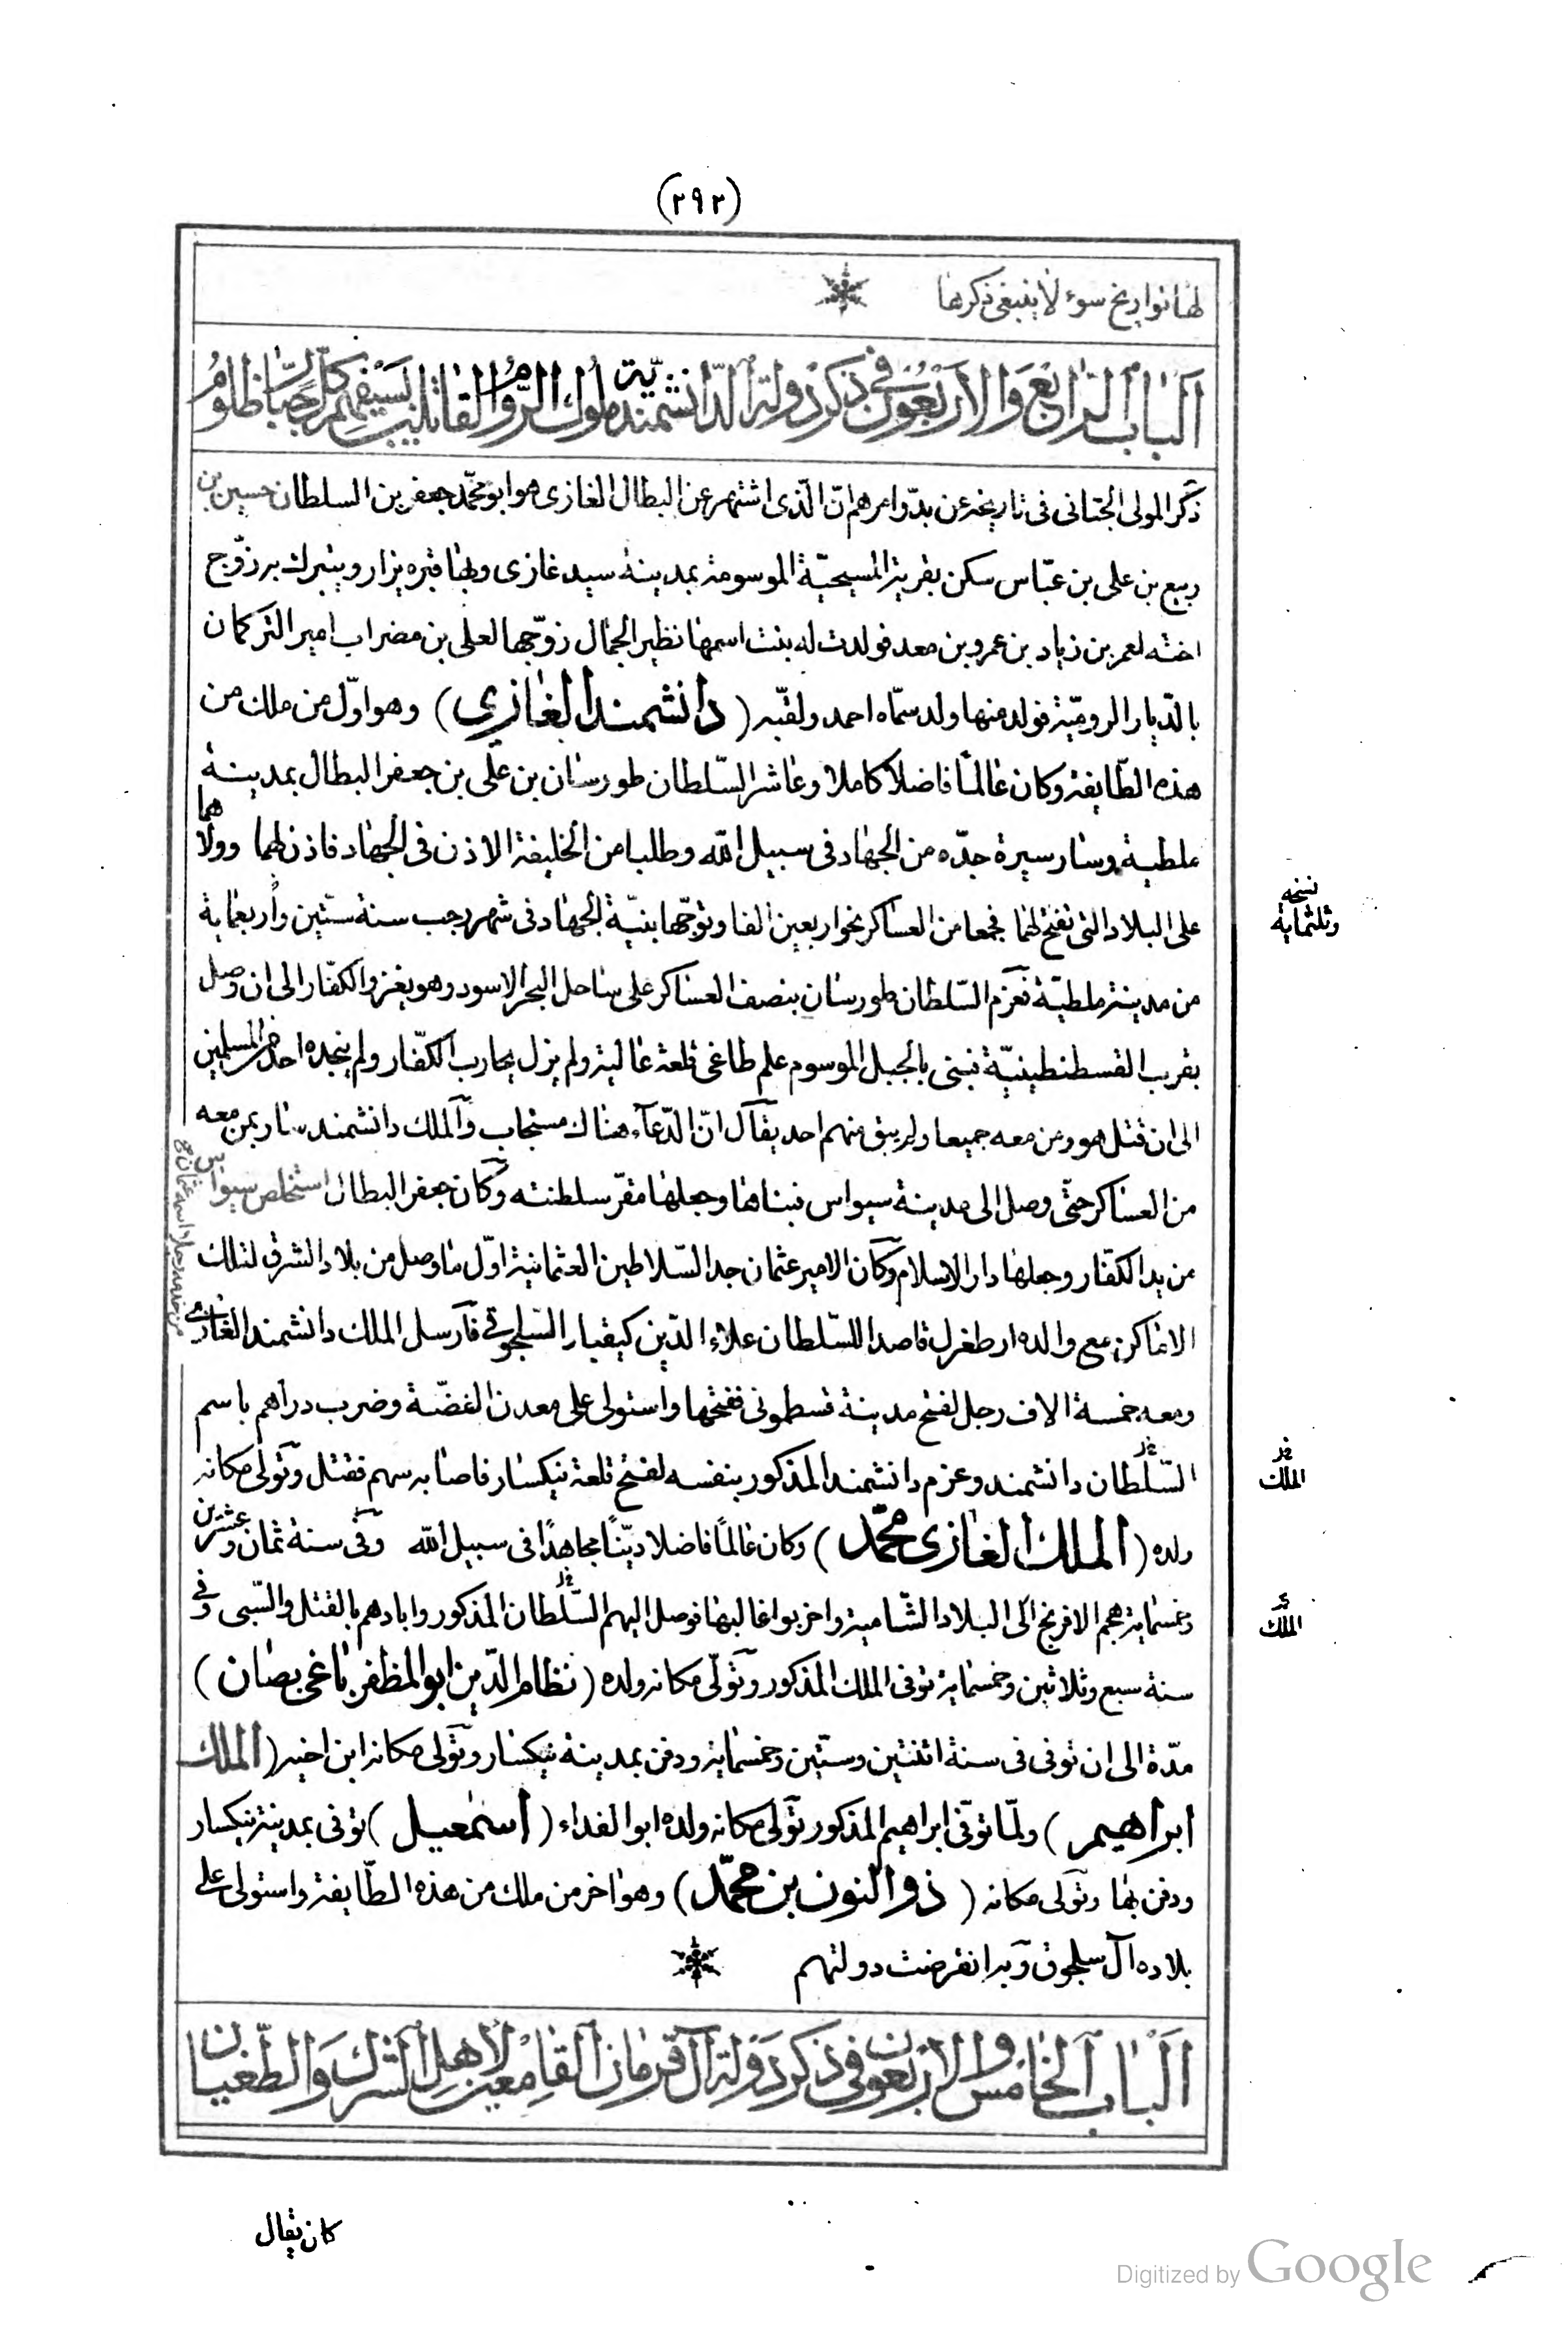 (٢٩٢)
لها تواريخ سوء لا ينبغى ذكرها
الباب الرابع والاربعون فى ذكر دولة الدانشمندية ملوك الروم القاتلين بسيفهم كل ظلوم
ذكر المولى الجنابى فى تاريخه عن بدو امرهم ان الذى اشتهر عن البطال الغازى هو ابو محمد جعفر بن السلطان حسين بن
ربيع بن على بن عباس سكن بقرية المسيحية الموسومة بمدينة سيد غازى وبها قبره يزار ويتبرك به زوج
اخته لعمر بن زياد بن عمرو بن معد فولدت له بنت اسمها نظير الجمال زوجها لعلى بن مضراب امير التركمان
بالديار الرومية فولد منها ولد سماه احمد ولقبه (دانشمند الغازي) وهو اول من ملك من
هذه الطايفة وكان عالما فاضلا كاملا وعاشر السلطان طورسان بن على بن جعفر البطال بمدينة
ملطية وسار سيرة جده من الجهاد فى سبيل الله وطلبا من الخليفة الاذن فى الجهاد فاذن لهما وولاهما
على البلاد التى تفتح لهما فجمعا من العساكر نحو اربعين الفا وتوجها بنية الجهاد فى شهر رجب سنة ستين وأربعماية
نسخه وثلثمايه
من مدينة ملطية فعزم السلطان طورسان بنصف العساكر على ساحل البحر الاسود وهو يغزو الكفار الى ان وصل
بقرب القسطنطينية فبنى بالجبل الموسوم علم طاغى قلعة عالية ولم يزل يحارب الكفار ولم ينجده احد من المسلمين
الى ان قتل هو ومن معه جميعا ولم يبق منهم احد يقال ان الدعاء هناك مستجاب والملك دانشمند سار بمن معه
من العساكر حتى وصل الى مدينة سيواس فبناها وجعلها مقر سلطنته وكان جعفر البطال استخلص سيواس
من يد الكفار وجعلها دار الاسلام وكان الامير عثمان جد السلاطين العثمانية اول ما وصل من بلاد الشرق لتلك
الاماكن مع والده ارطغرل قاصدا للسلطان علاء الدين كيقباد السلجوقى فارسل الملك دانشمند الغازى
من خدمه رجلا اسمه عثمان
ومعه خمسة الاف رجل لفتح مدينة قسطمونى ففتحها واستولى على معدن الفضة وضرب دراهم باسم
السلطان دانشمند وعزم دانشمند المذكور بنفسه لفتح قلعة نيكسار فاصابه سهم فقتل وتولى مكانه
الملك
ولده (الملك الغازى محمد) وكان عالمًا فاضلا دينًا مجاهدًا فى سبيل الله وفى سنة ثمان وعشرين
وخمسماية هجم الافرنج الى البلاد الشامية واخربوا غالبها فوصل اليهم السلطان المذكور وابادهم بالقتل والسبى وفى
الملك
سنة سبع وثلاثين وخمسماية توفى الملك المذكور وتولى مكانه ولده (نظام الدين ابو المظفر ياغى بصان)
مدة الى ان توفى فى سنة اثنتين وستين وخمسماية ودفن بمدينة نيكسار وتولى مكانه ابن اخيه (الملك
ابراهيم) ولما توفى ابراهيم المذكور تولى مكانه ولده ابو الفداء (اسمعيل) توفى بمدينة نيكسار
ودفن بها وتولى مكانه (ذو النون بن محمد) وهو اخر من ملك من هذه الطايفة واستولى على
بلاده آل سلجوق وبه انقرضت دولتهم
الباب الخامس والاربعون فى ذكر دولة آل قرمان القامعين لاهل الشرك والطغيان
كان يقال
Digitized by Google